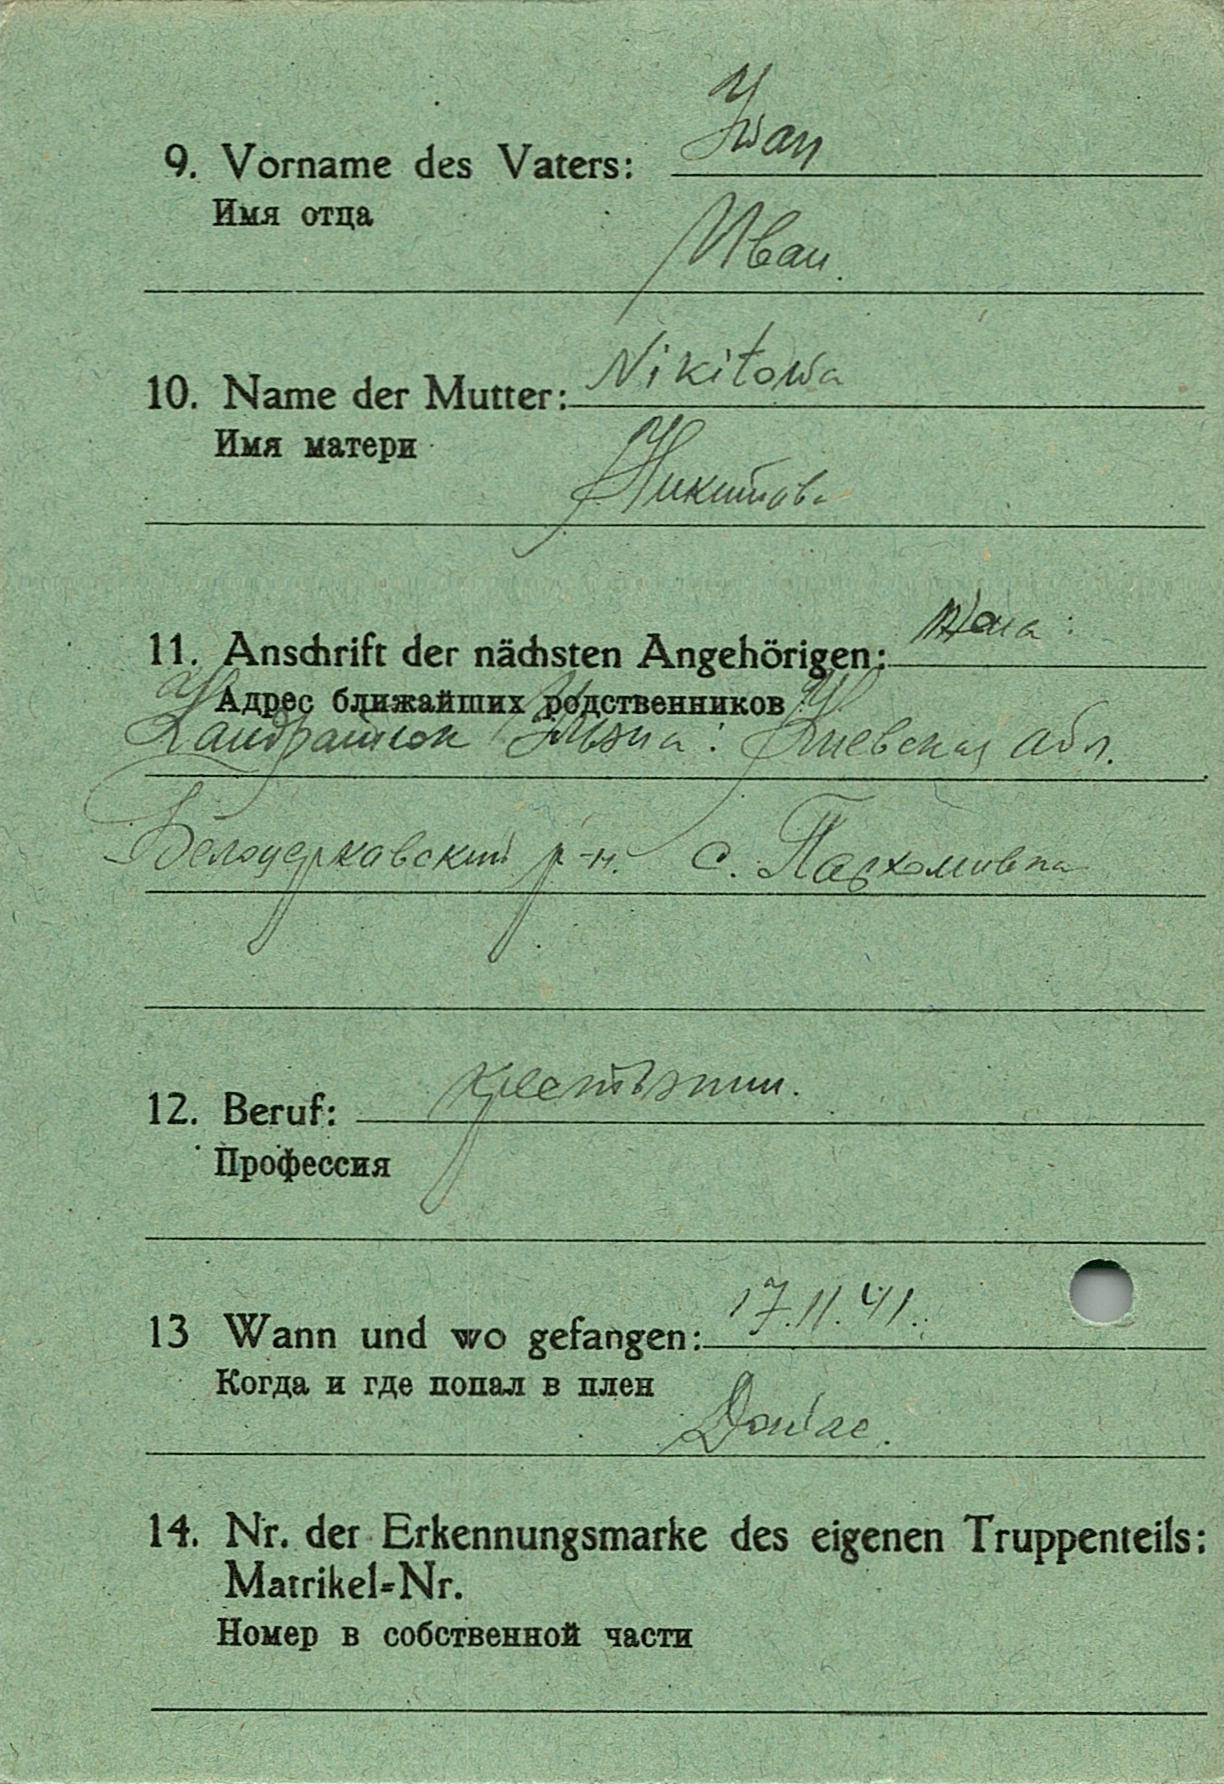 9. Vorname des Vaters: Iwan
Имя отца
Иван.
10. Name der Mutter: Nikitowa
Имя матери
Никитова
11. Anschrift der nächsten Angehörigen:
Адрес ближайших родственников
Кандратюк : Киевская абл.
Белоцеркавский р-н. с. Пархомивка
12. Beruf: крестьянин.
Профессия
13 Wann und wo gefangen: 17.11.41.
Когда и где попал в плен
14. Nr. der Erkennungsmarke des eigenen Truppenteils:
Matrikel-Nr.
Номер в собственной части